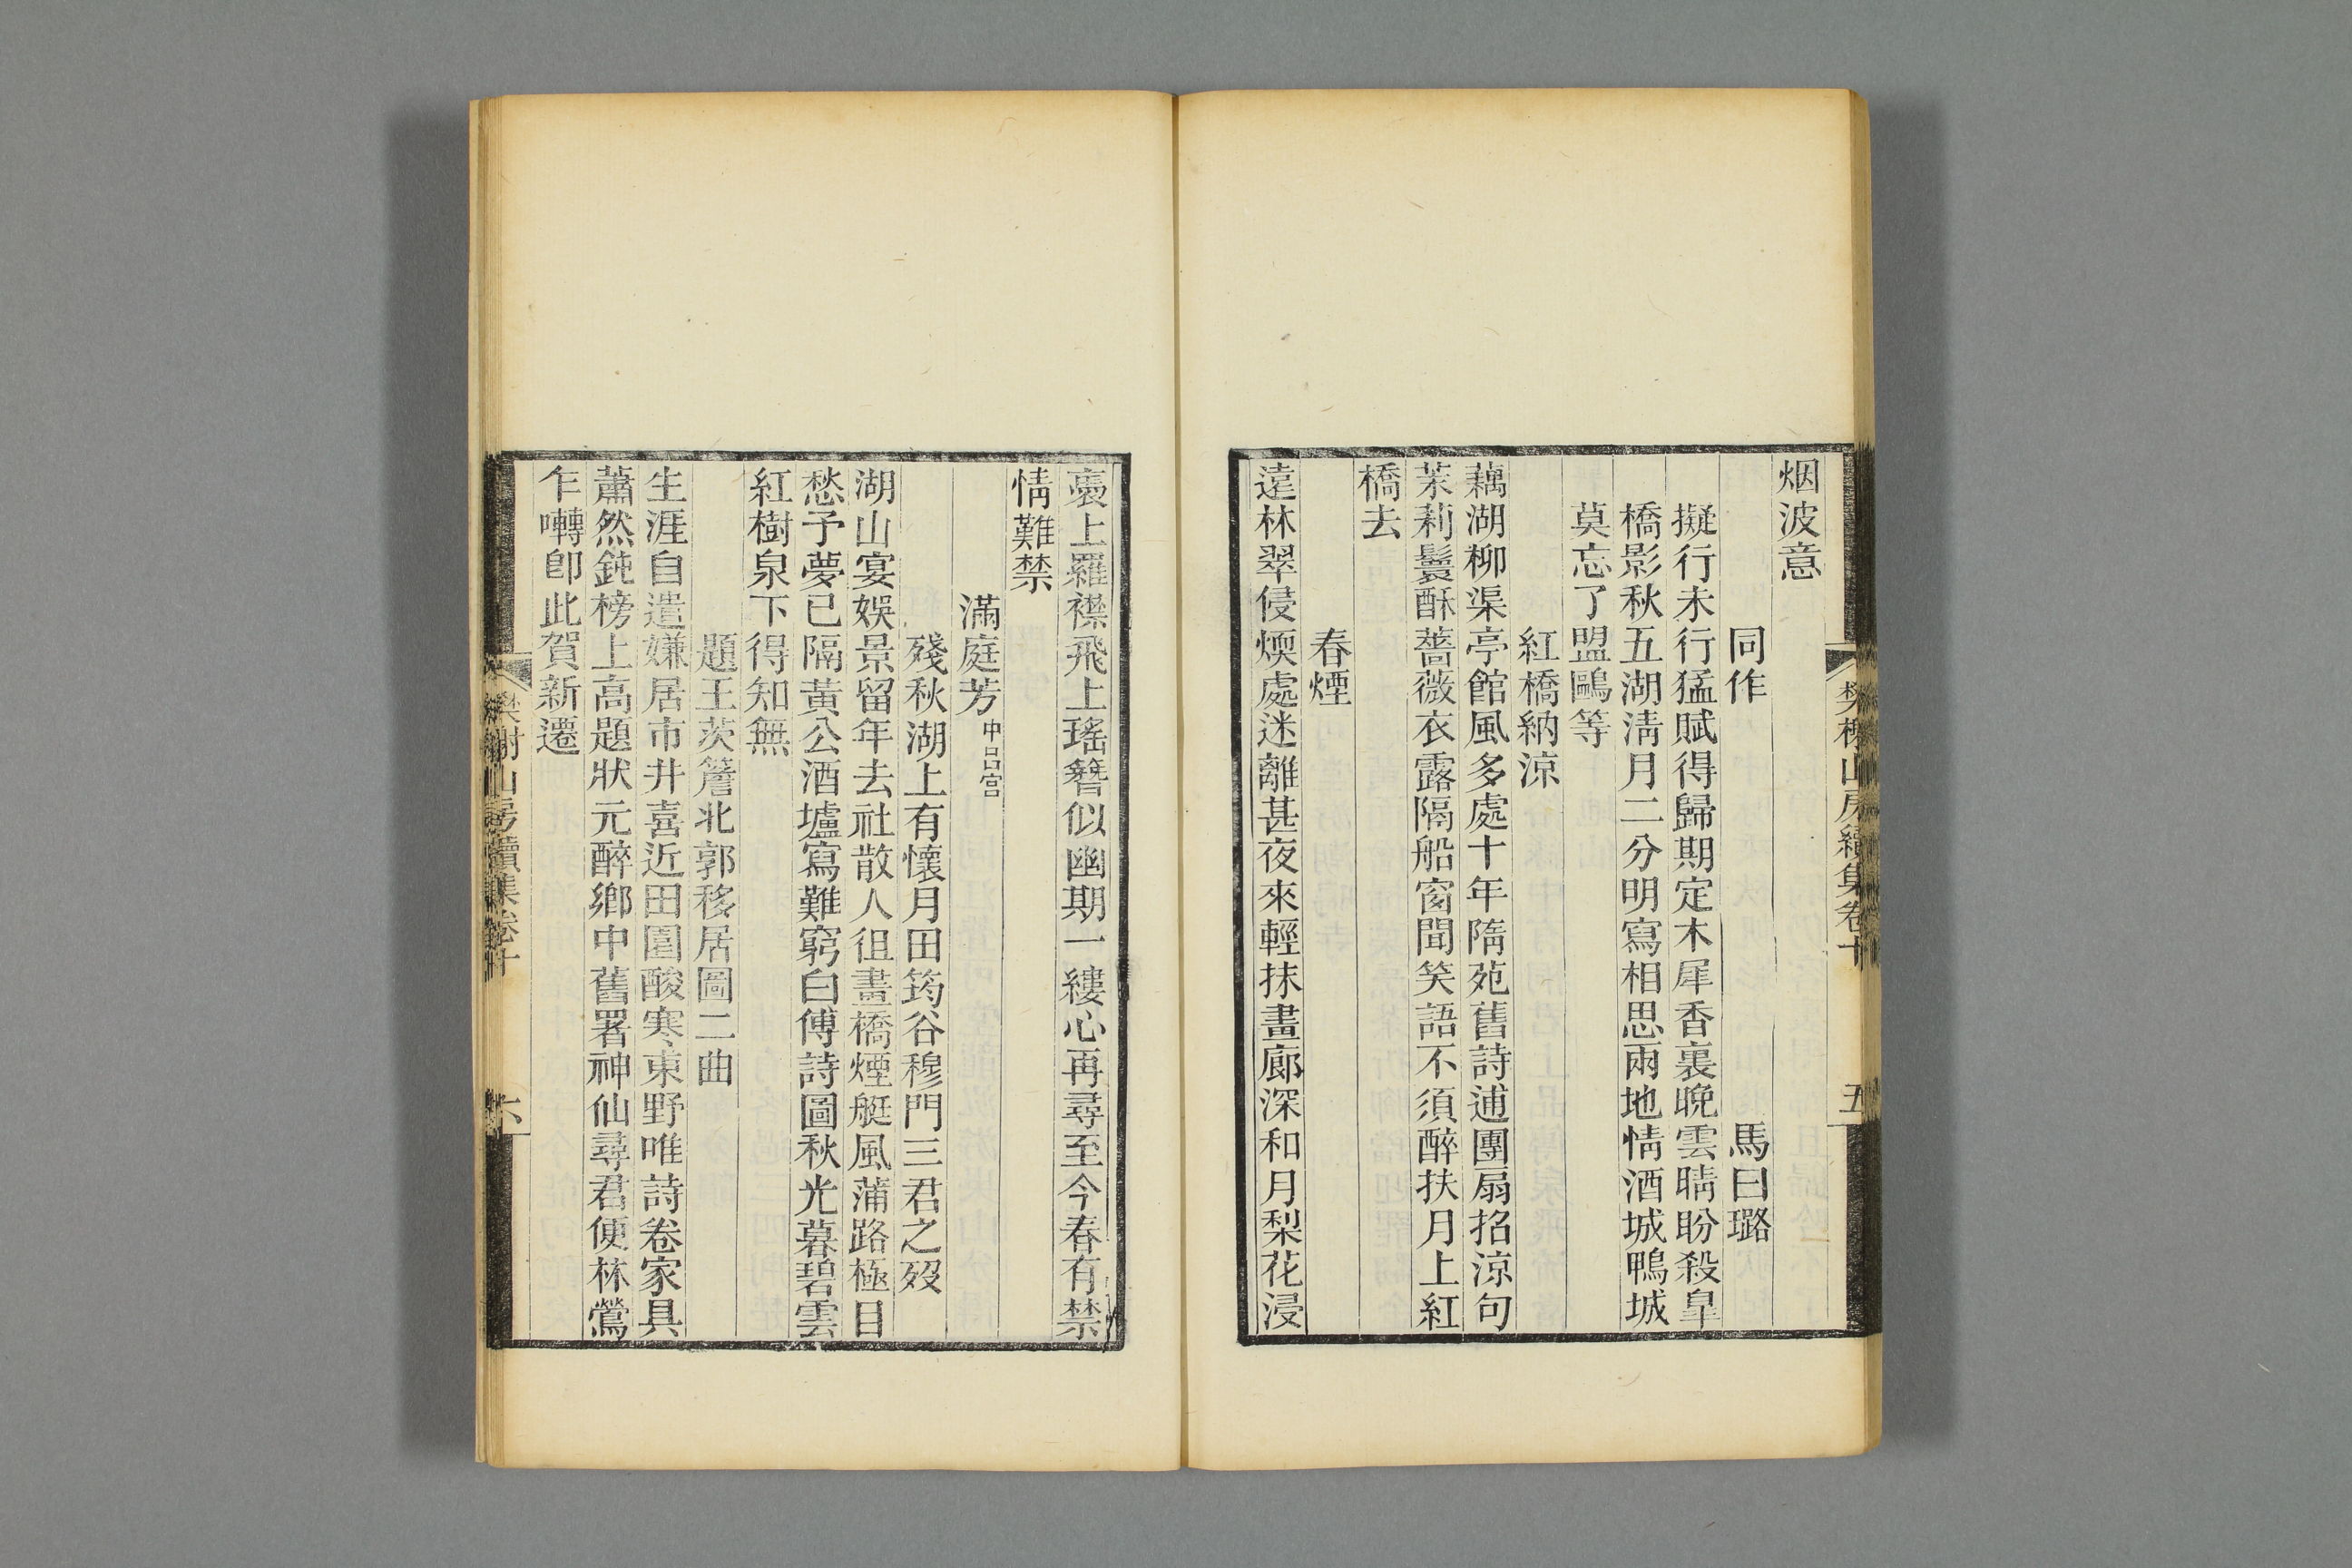 樊榭山房續集卷十
五
烟波意
同作 馬曰璐
擬行未行猛賦得歸期定木犀香裏晚雲晴盼殺皐
橋影秋五湖淸月二分明寫相思兩地情酒城鴨城
莫忘了盟鷗等
紅橋納涼
藕湖柳渠亭館風多處十年隋苑舊詩逋團扇招涼句
茉莉鬟酥薔薇衣露隔船窗聞笑語不須醉扶月上紅
橋去
春煙
遠林翠侵煗處迷離甚夜來輕抹畫廊深和月梨花浸
裛上羅襟飛上瑤簪似幽期一縷心再尋至今春有禁
情難禁
滿庭芳中呂宮
殘秋湖上有懷月田筠谷穆門三君之歿
湖山宴娛景留年去社散人徂畫橋煙艇風蒲路極目
愁予夢已隔黃公酒壚寫難窮白傅詩圖秋光暮碧雲
紅樹泉下得知無
題王茨簷北郭移居圖二曲
生涯自遣嫌居市井喜近田園酸寒東野唯詩卷家具
蕭然鈍榜上高題狀元醉鄉中舊署神仙尋君便林鶯
乍囀卽此賀新遷
樊榭山房續集卷十
六